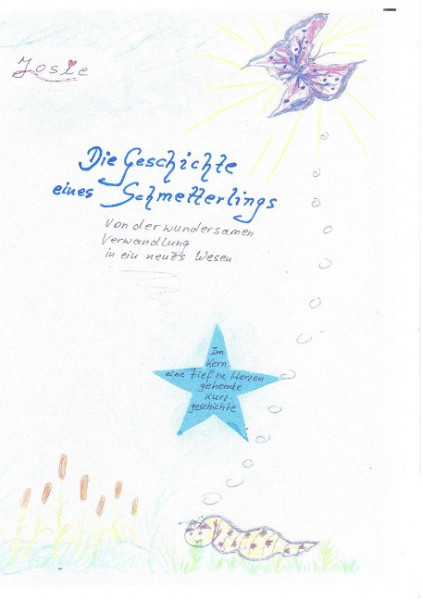 Josie
Die Geschichte
eines Schmetterlings
Von der wundersamen
Verwandlung
in ein neues Wesen
Im
Kern
eine tief zu Herzen
gehende
Kurz-
geschichte